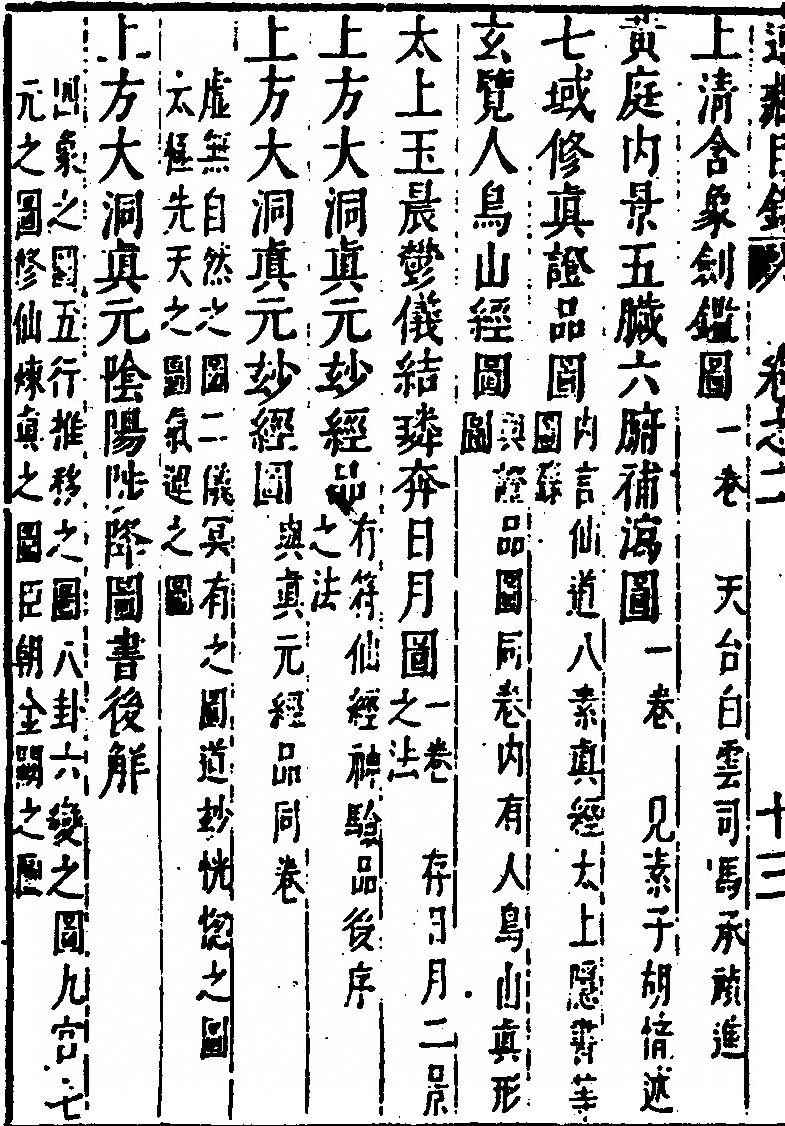 道藏目錄 卷之二 十三
上清含象劍鑑圖 一卷 天台白雲司馬承禎進
黃庭內景五臟六腑補瀉圖 一卷 見素子胡愔述
七域修真證品圖 內言仙道八素真經太上隱書等
圖籙
玄覽人鳥山經圖 與證品圖同卷內有人鳥山真形
圖
太上玉晨鬱儀結璘奔日月圖 一卷 存日月二景
之法
上方大洞真元妙經品 有符仙經神驗品後序
之法
上方大洞真元妙經圖 與真元經品同卷
虛無自然之圖二儀冥有之圖道妙恍惚之圖
太極先天之圖氣運之圖
上方大洞真元陰陽陟降圖書後解
四象之圖五行推移之圖八卦六變之圖九宮七
元之圖修仙煉真之圖臣朝金闕之圖